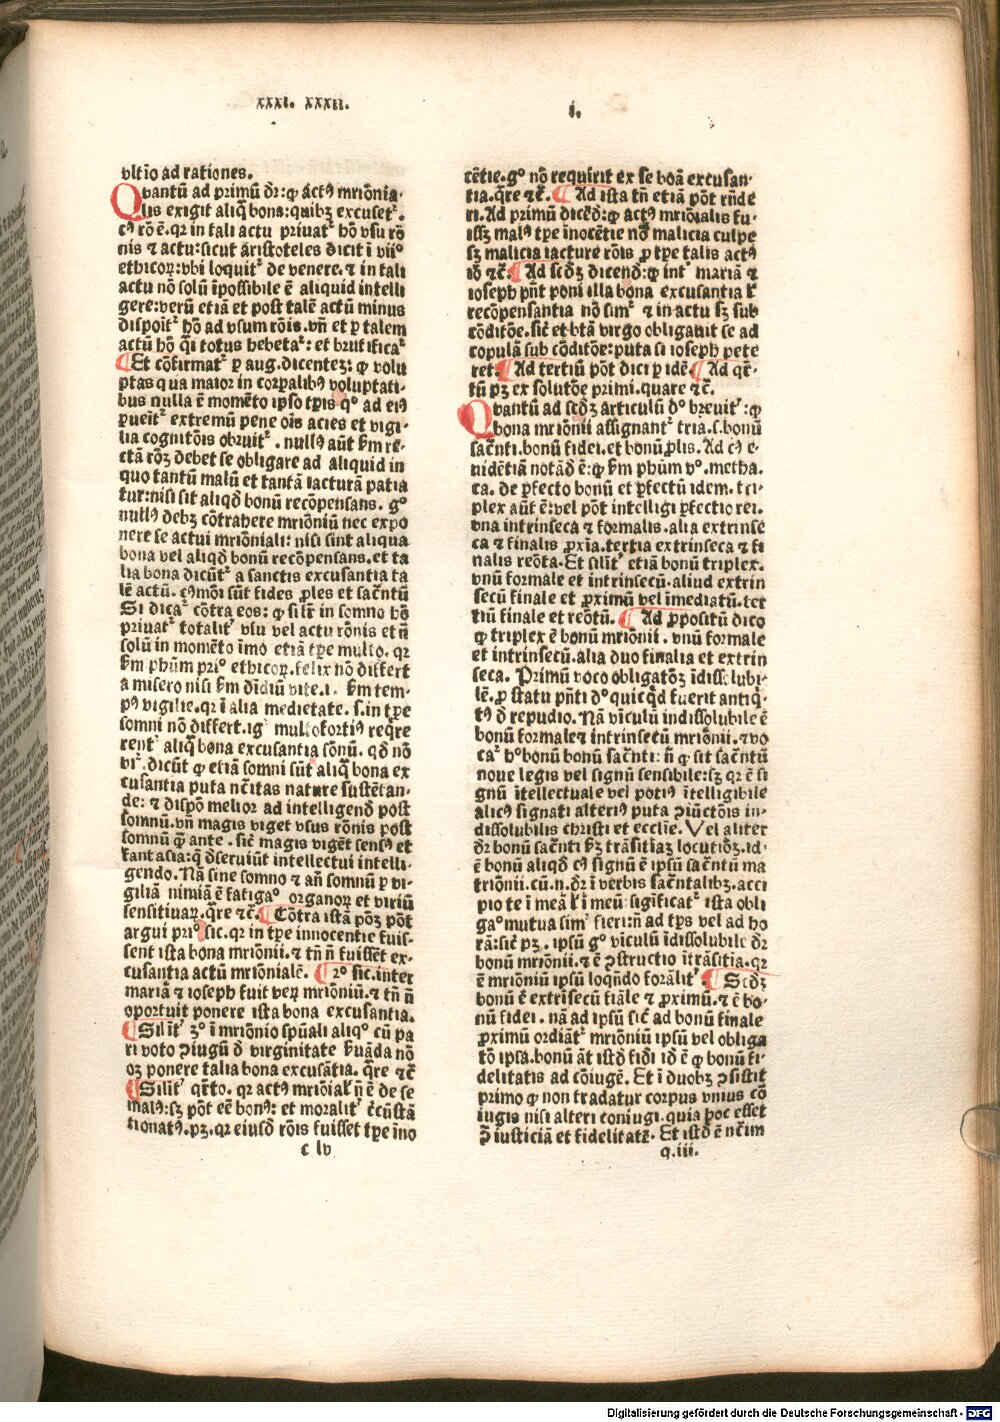 xxxi. xxxii.
i.
vltīo ad rationes.
Quantū ad primū dr: ꝙ actꝰ mrīonia-
lis exigit aliq̄ bona: quibꝫ excuset᷑.
cꝰ rō ē. qꝛ in tali actu priuat᷑ hō vsu rō
nis ⁊ actu: sicut aristoteles dicit ī vii°
ethicoꝝ: vbi loquit᷑ de venere. ⁊ in tali
actu nō solū īpossibile ē aliquid intelli
gere: verū etiā et post talē actū minus
dispoīt᷑ hō ad vsum rōis. vn̄ et ꝑ talem
actū hō q̄i totus hebeta᷑: et brutifica᷑
¶ Et cōfirmat᷑ ꝑ aug. dicenteꝫ: ꝙ volu
ptas qua maior in corꝑalibꝰ voluptati-
bus nulla ē momēto ipso tꝑis q° ad eiꝰ
ꝑueīt᷑ extremū pene oīs acies et vigi-
lia cognitōis obruit᷑. nullꝰ aūt ẜm re-
ctā rōꝫ debet se obligare ad aliquid in
quo tantū malū et tantā iacturā patia
tur: nisi sit aliqd bonū recōpensans. g°
nullꝰ debꝫ cōtrahere mriōniū nec expo
nere se actui mriōniali: nisi sint aliqua
bona vel aliqd bonū recōpensans. et ta
lia bona dicūt᷑ a sanctis excusantia ta
lē actū. cꝰmōi sūt fides ꝓles et sac̄ntū
Si dica᷑ cōtra eos: ꝙ sil̄r in somno hō
priuat᷑ totalit᷑ vsu vel actu rōnis et n̄
solū in momēto īmo etiā tꝑe multo. qꝛ
ẜm phūm pri° ethicoꝝ. felix nō differt
a misero nisi ẜm dīdiū vite. i. ẜm tem-
pꝰ vigilie. qꝛ ī alia medietate. s. in tꝑe
somni nō differt. ig᷑ multofortiꝰ req̄re
rent᷑ aliq̄ bona excusantia sōnū. qd nō
vr᷑. dicūt ꝙ etiā somni sūt aliq̄ bona ex
cusantia puta nc̄itas nature sustētan-
de: ⁊ dispō melior ad intelligend post
somnū. vn̄ magis viget vsus rōnis post
somnū q̄ ante. sic̄ magis vigēt sensꝰ et
fantasia: q̄ dseruiūt intellectui intelli-
gendo. Nā sine somno ⁊ an̄ somnū ꝑ vi-
giliā nimiā ē fatiga° organoꝝ et viriū
sensitiuaꝝ. q̄re ⁊c̄. ¶ Cōtra istā pōꝫ pōt
argui pri° sic. qꝛ in tꝑe innocentie fuis-
sent ista bona mriōnii. ⁊ tn̄ n̄ fuisset ex-
cusantia actū mriōnialē. ¶ 2° sic. inter
mariā ⁊ ioseph fuit veꝝ mriōniū. ⁊ tn̄ n̄
oportuit ponere ista bona excusantia.
¶ Silīt᷑ 3° ī mriōnio spūali aliq° cū pa
ri voto ↄiugū d virginitate ẜuāda nō
oꝫ ponere talia bona excusātia. q̄re ⁊c̄
¶ Silīt᷑ q̄rto. qꝛ actꝰ mriōial̄ n̄ ē de se
malꝰ: sꝫ pōt eē bonꝰ: et moralit᷑ c̄cūstā
tionatꝰ. pꝫ. qꝛ eiusd rōis fuisset tꝑe īno
c lv
cētie. g° nō requirit ex se boā excusan-
tia. q̄re ⁊c̄. ¶ Ad ista tn̄ etiā pōt rn̄de
ri. Ad primū dicēd: ꝙ actꝰ mriōialis fu-
issꝫ malꝰ tꝑe īnocētie nō malicia culpe
sꝫ malicia iacture rōis ꝓ tꝑe talis actꝰ
iō ⁊c̄. ¶ Ad scdꝫ dicend: ꝙ int᷑ mariā ⁊
ioseph pn̄t poni illa bona excusantia l̄
recōpensantia nō sim᷑ ⁊ in actu sꝫ sub
cōditōe. sic̄ et btā virgo obligauit se ad
copulā sub cōditōe: puta si ioseph pete
ret. ¶ Ad tertiū pōt dici ꝑ idē. ¶ Ad q̄r-
tū pꝫ ex solutōe primi. quare ⁊c̄.
Quantū ad scdꝫ articulū d° breuit᷑: ꝙ
bona mriōnii assignant᷑ tria. s. bonū
sac̄nti. bonū fidei. et bonū ꝓlis. Ad cꝰ e-
uidētiā notād ē: ꝙ ẜm phūm v°. metha.
ca. de ꝑfecto bonū et ꝑfectū idem. tri-
plex aūt ē: vel pōt intelligi ꝑfectio rei.
vna intrinseca ⁊ formalis. alia extrinse
ca ⁊ finalis ꝓxīa. tertia extrinseca ⁊ fi
nalis reōta. Et silīt᷑ etiā bonū triplex.
vnū formale et intrinsecū. aliud extrin
secū finale et ꝓximū vel īmediatū. ter
tiū finale et reōtū. ¶ Ad ꝓpositū dico
ꝙ triplex ē bonū mriōnii. vnū formale
et intrinsecū. alia duo finalia et extrin
seca. Primū voco obligatōꝫ īdissolubi-
lē. ꝓ statu pn̄ti d° quicq̄d fuerit antiq̄-
tꝰ d repudio. Nā vīculū indissolubile ē
bonū formale ⁊ intrinsecū mriōnii. ⁊ vo
ca᷑ v° bonū bonū sac̄nti: n̄ ꝙ sit sac̄ntū
noue legis vel signū sensibile: sꝫ qꝛ ē si
gnū ītellectuale vel potiꝰ ītelligibile
alicꝰ signati alteriꝰ puta ↄiūctōis in-
dissolubilis christi et eccl̄ie. Vel aliter
dr bonū sac̄nti ẜꝫ trāsitiaꝫ locutiōꝫ. id-
ē bonū aliqd cꝰ signū ē ipsū sac̄ntū ma
triōnii. cū. n. dr ī verbis sac̄ntalibꝫ. acci
pio te ī meā l̄ ī meū sigificat᷑ ista obli
ga° mutua sim᷑ fieri: n̄ ad tp̄s vel ad ho
rā: sic̄ pꝫ. ipsū g° vīculū īdissolubile dr
bonū mriōnii. ⁊ ē ↄstructio ītrāsitia. qꝛ
ē mriōniū ipsū loqn̄do forālit᷑. ¶ Scdꝫ
bonū ē extrīsecū fiāle ⁊ ꝓximū. ⁊ ē bo-
nū fidei. nā ad ipsū sic̄ ad bonū finale
ꝓximū ordiāt᷑ mriōniū ipsū vel obliga
tō ipsa. bonū āt istd fidi id ē ꝙ bonū fi-
delitatis ad cōiugē. Et ī duobꝫ ↄsistit
primo ꝙ non tradatur corpus vnius cō
iugis nisi alteri coniugi. quia hoc esset
ↄ̄ iusticiā et fidelitatē. Et istd ē nc̄im
q.iii.
Digitalisierung gefördert durch die Deutsche Forschungsgemeinschaft - DFG